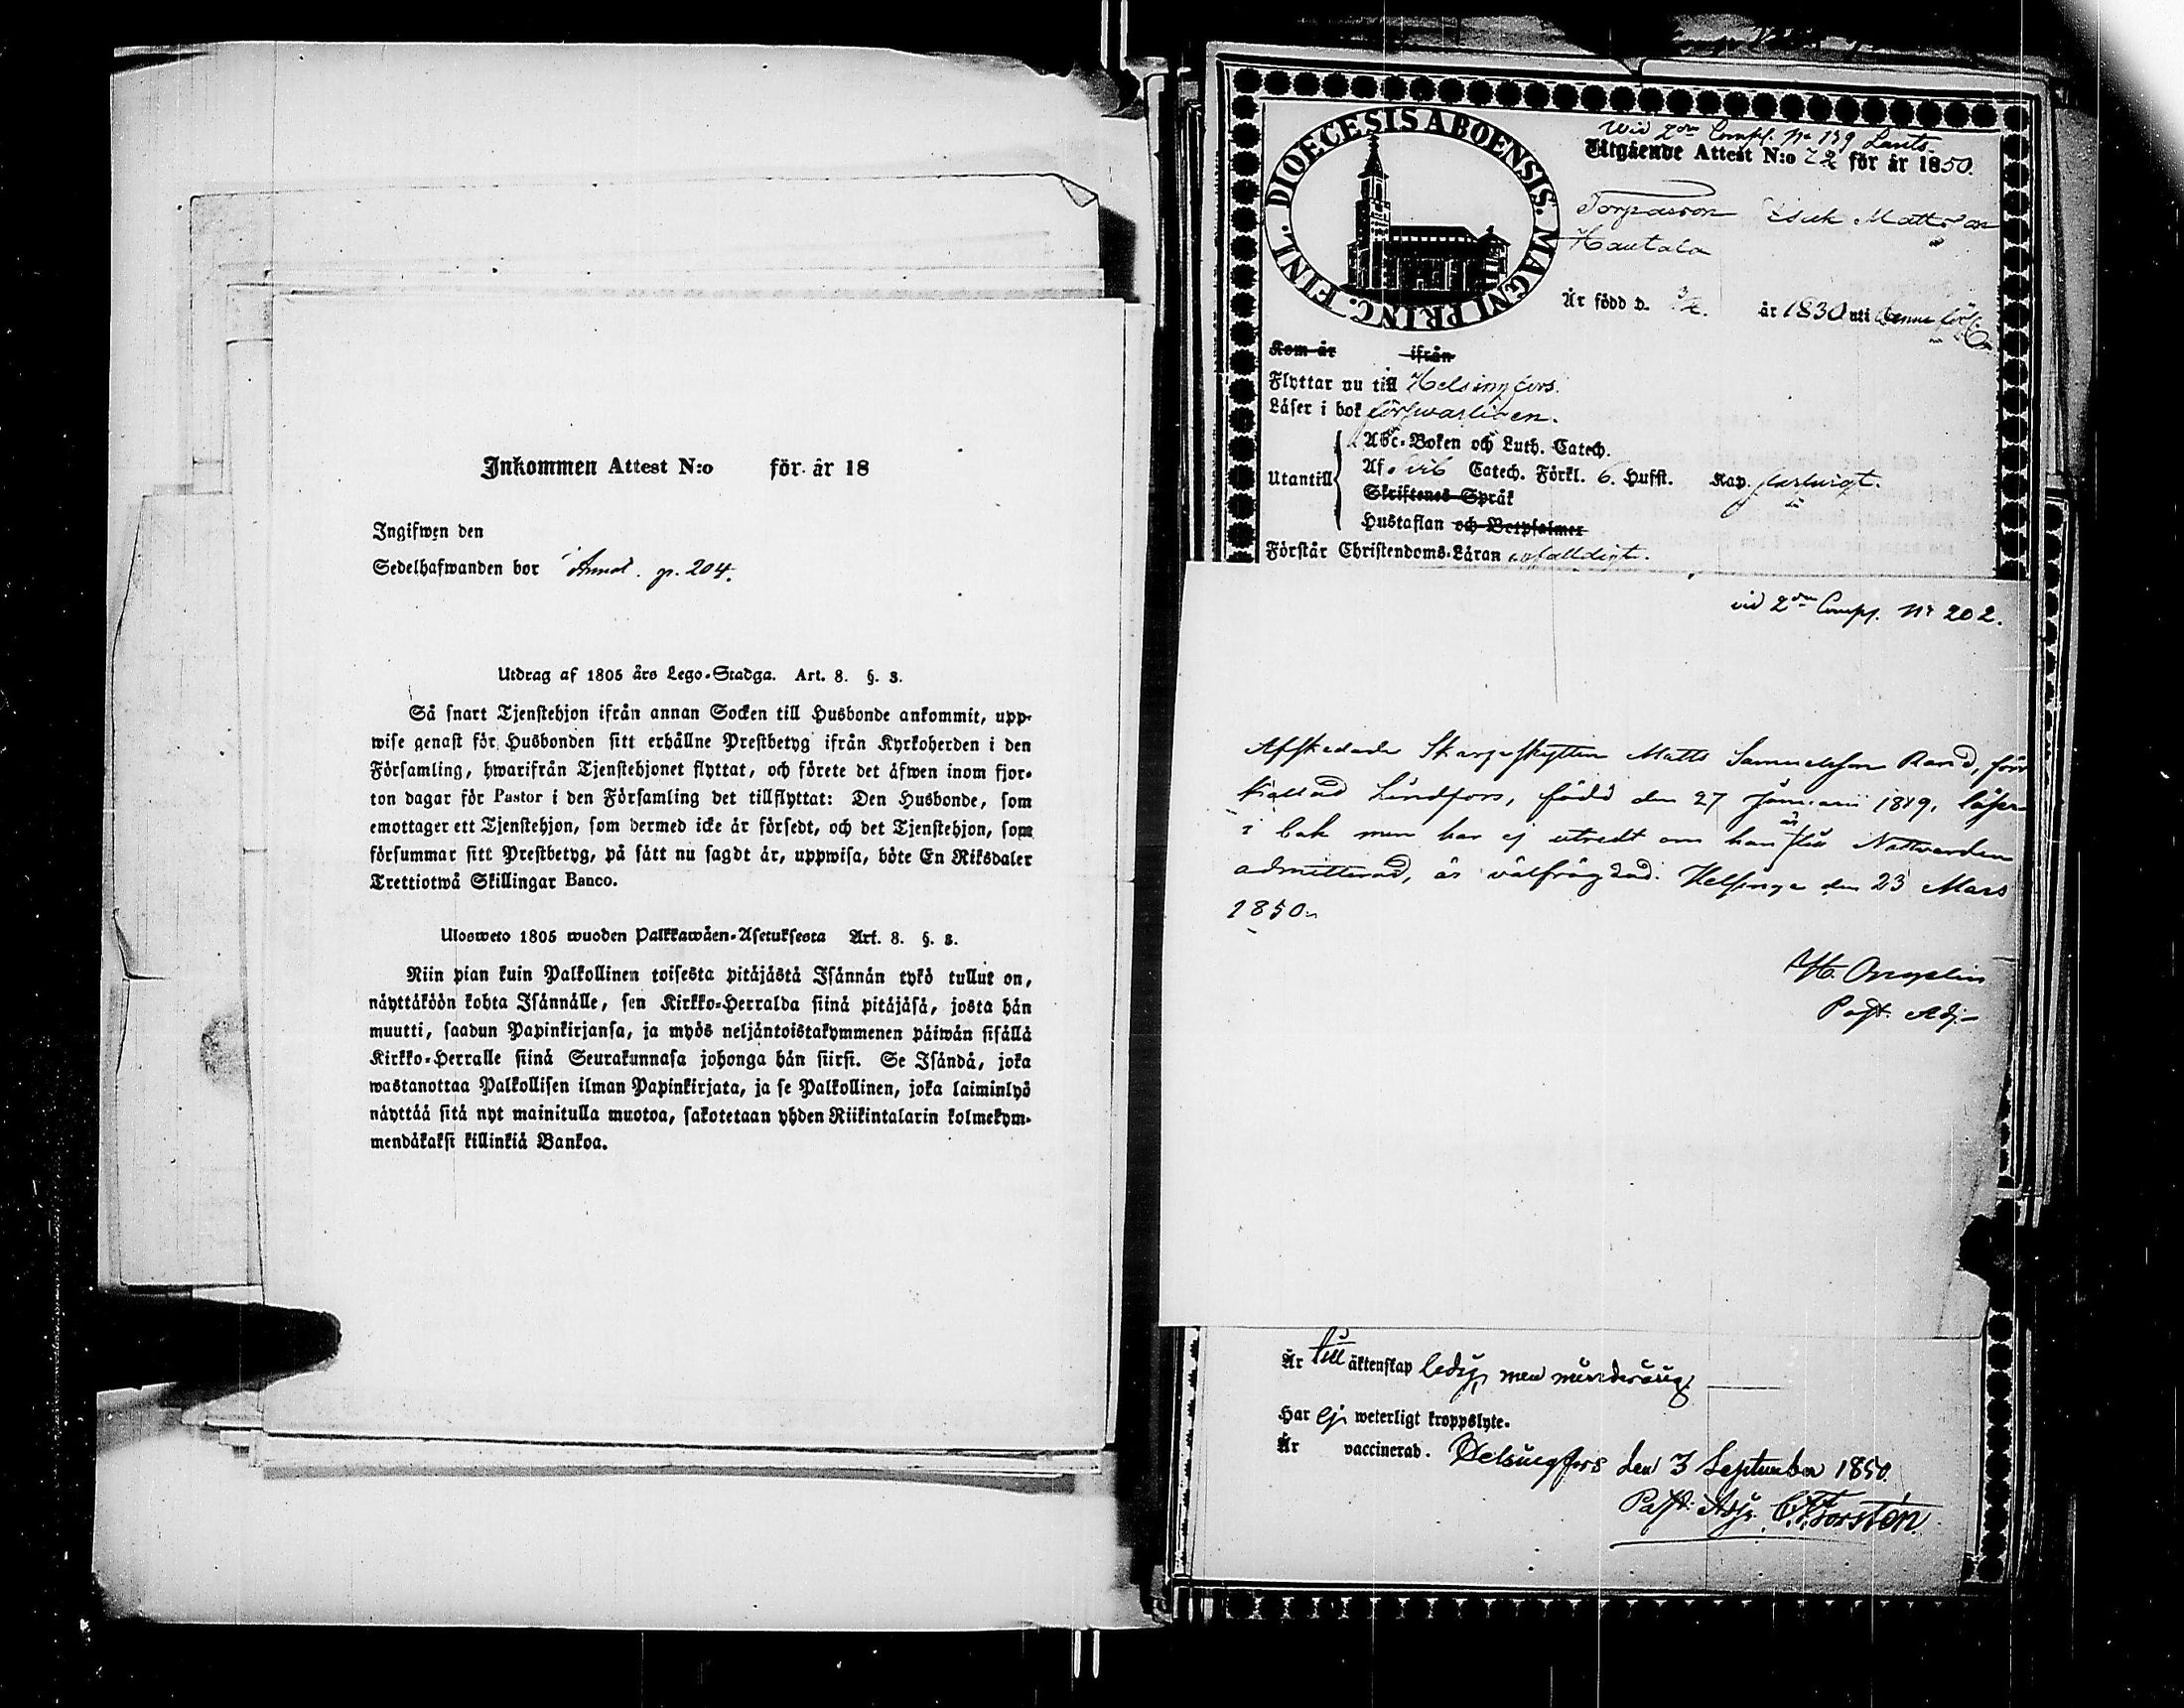 Inkommen Attest N:o för år 18
Ingifwen den
Sedelhafwanden bor i Annot. p. 204.
Utdrag af 1805 års Lego-Stadga. Art. 8. §. 3.
Så snart Tjenstehjon ifrån annan Socken till Husbonde ankommit, upp-
wise genast för Husbonden sitt erhållne Prestbetyg ifrån Kyrkoherden i den
Församling, hwarifrån Tjenstehjonet flyttat, och förete det äfwen inom fjor-
ton dagar för Pastor i den Församling det tillflyttat: Den Husbonde, som
emottager ett Tjenstehjon, som dermed icke är försedt, och det Tjenstehjon, som
försummar sitt Prestbetyg, på sätt nu sagdt är, uppwisa, böte En Riksdaler
Trettiotwå Skillingar Banco.
Ulosweto 1805 wuoden Palkkawäen-Asetuksesta Art. 8. §. 3.
Niin pian kuin Palkollinen toisesta pitäjästä Isännän tykö tullut on,
näyttäköön kohta Isännälle, sen Kirkko-Herralda siinä pitäjäsä, josta hän
muutti, saadun Papinkirjansa, ja myös neljäntoistakymmenen päiwän sisällä
Kirkko-Herralle siinä Seurakunnasa johonga hän siirsi. Se Isändä, joka
wastanottaa Palkollisen ilman Papinkirjata, ja se Palkollinen, joka laiminlyö
näyttää sitä nyt mainitulla muotoa, sakotetaan yhden Riikintalarin kolmekym-
mendäkaksi killinkiä Bankoa.
DIOECESIS ABOENSIS. MAGNI PRINC. FINL.
Wid 2dra Comp. No 139 Lants.
Utgående Attest N:o 72 för år 1850.
Torparson Isak Mattsson
Hautala
Är född d. år 1830 uti denne förs.
Kom år ifrån
Flyttar nu till Helsingfors.
Läser i bok förswarligen.
Abc-Boken och Luth. Catech.
Utantill Af Svib Catech. Förkl. 6. Hufst. Kap.
Skriftenes Språk
Hustaflan och Botpsalmer
Förstår Christendoms-Läran enfalldigt.
vid 2dra Comp. No 202.
Afskedade Skarpskytten Matts Samuelsson Rand, förr
kallad Lindfors, född den 27 Januarii 1819, läser
i bok men har ej utredt om han är till Nattvarden
admitterad, är välfrägdad. Helsinge den 23 Mars
1850.
Past. Adj.
Är till äktenskap ledig, men minderårig
Har ej weterligt kroppslyte.
Är vaccinerad. Helsingfors den 3 September 1850.
Past. Adj. C. F. Forstén